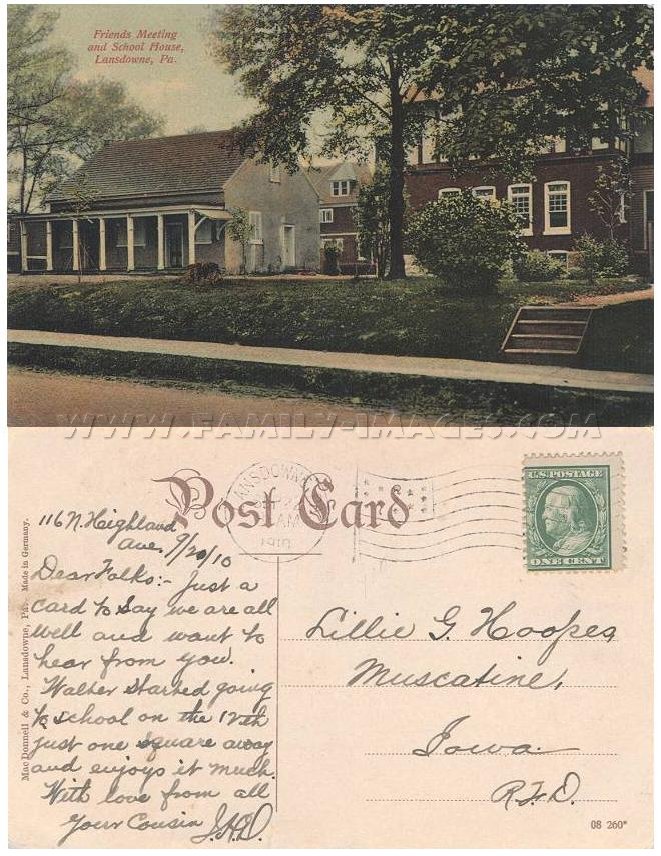 Friends Meeting
and School House,
Lansdowne, Pa.
WWW.FAMILY-IMAGES.COM
Post Card
LANSDOWNE
AM
1910
U.S. POSTAGE
ONE CENT
116 N. Heighland
Ave. 9/20/10
Dear Folks:- Just a
card to say we are all
well and want to
hear from you.
Walter started going
to school on the 12th
just one square away
and enjoys it much.
With love from all
Your Cousin J.H.D.
Lillie G. Hoopes,
Muscatine,
Iowa.
R.F.D.
MacDonnell & Co., Lansdowne, Pa. Made in Germany.
08 260*